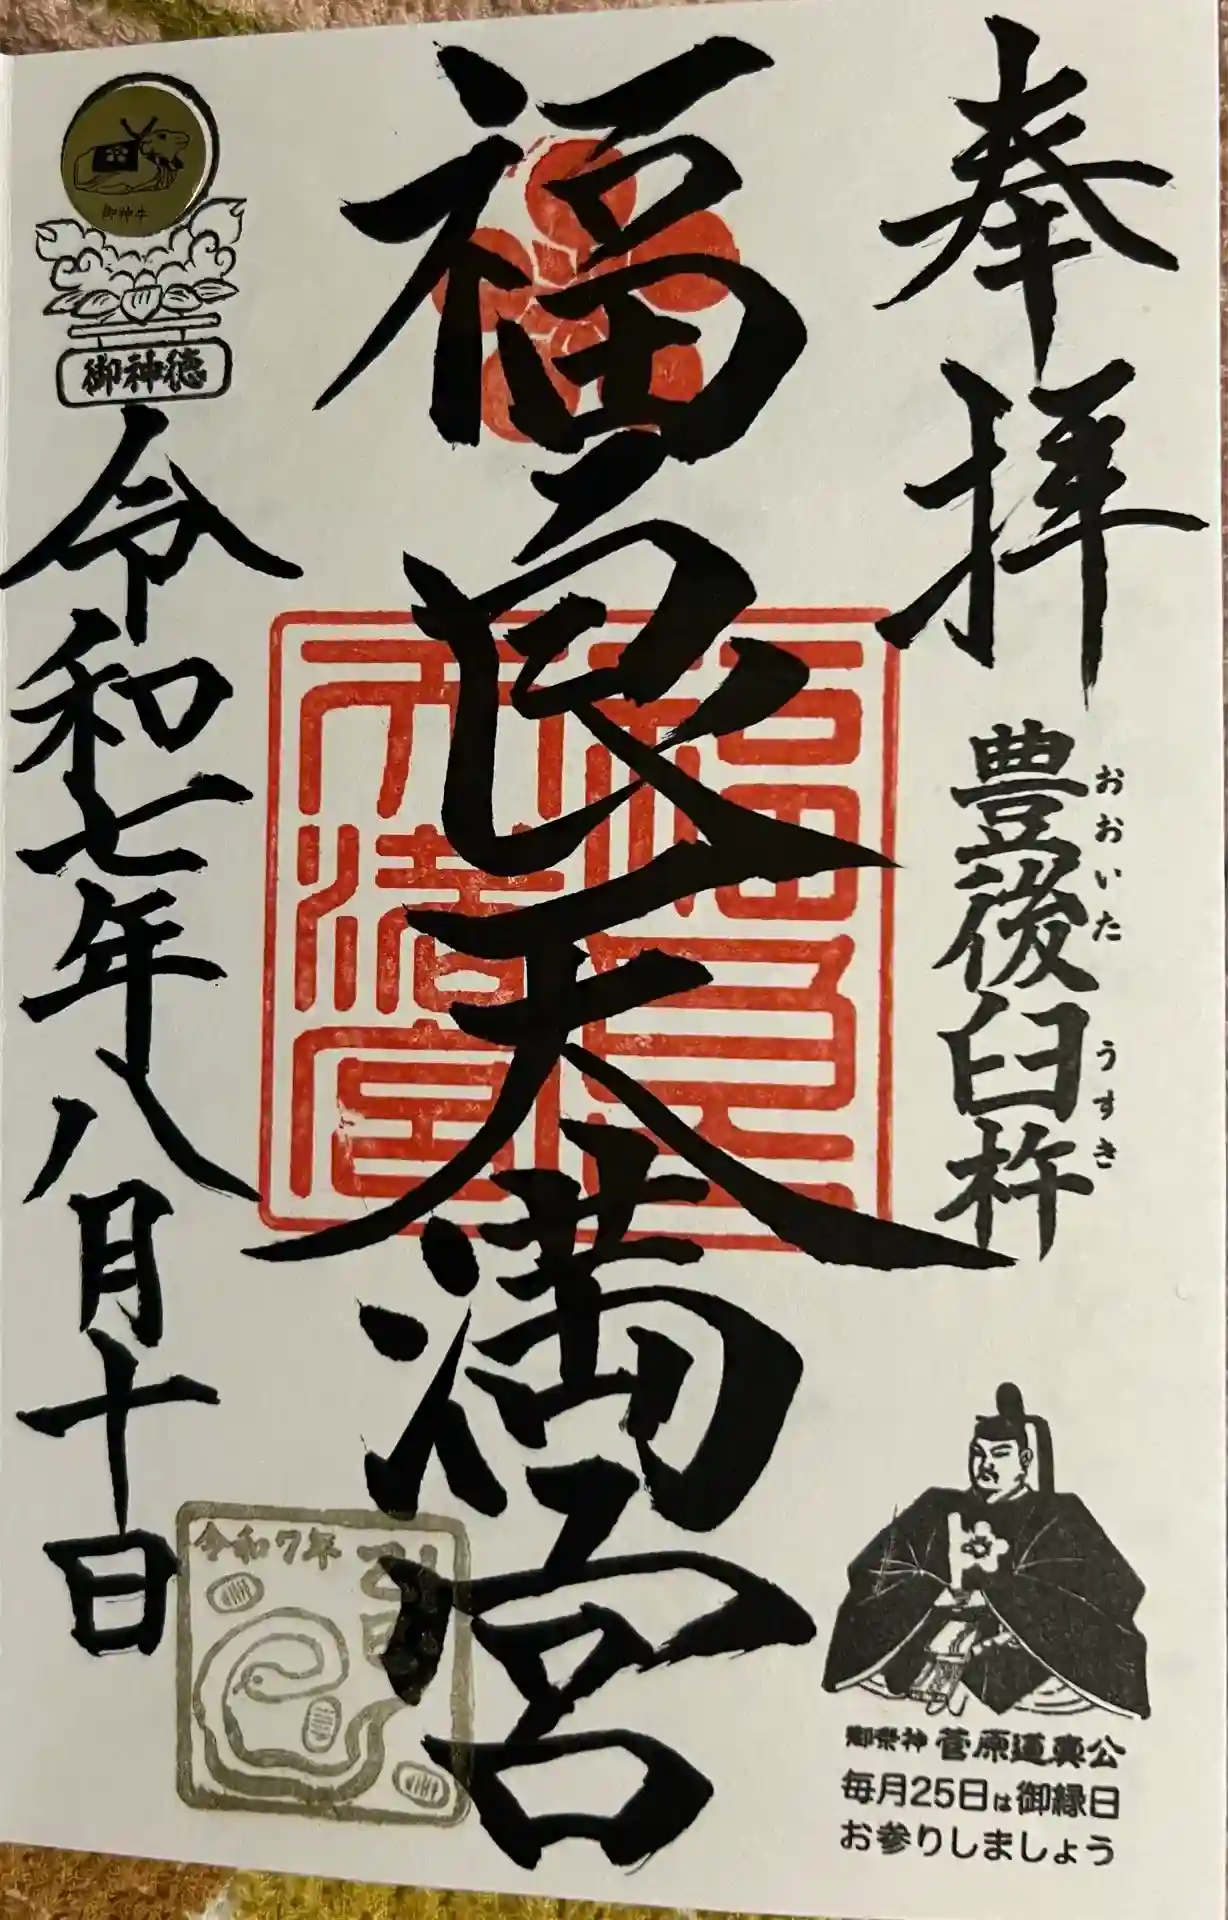 奉拝
豊後臼杵
おおいた うすき
福良天満宮
福良
天満宮
御神牛
御神徳
令和七年八月十日
令和7年
御祭神 菅原道真公
毎月25日は御縁日
お参りしましょう